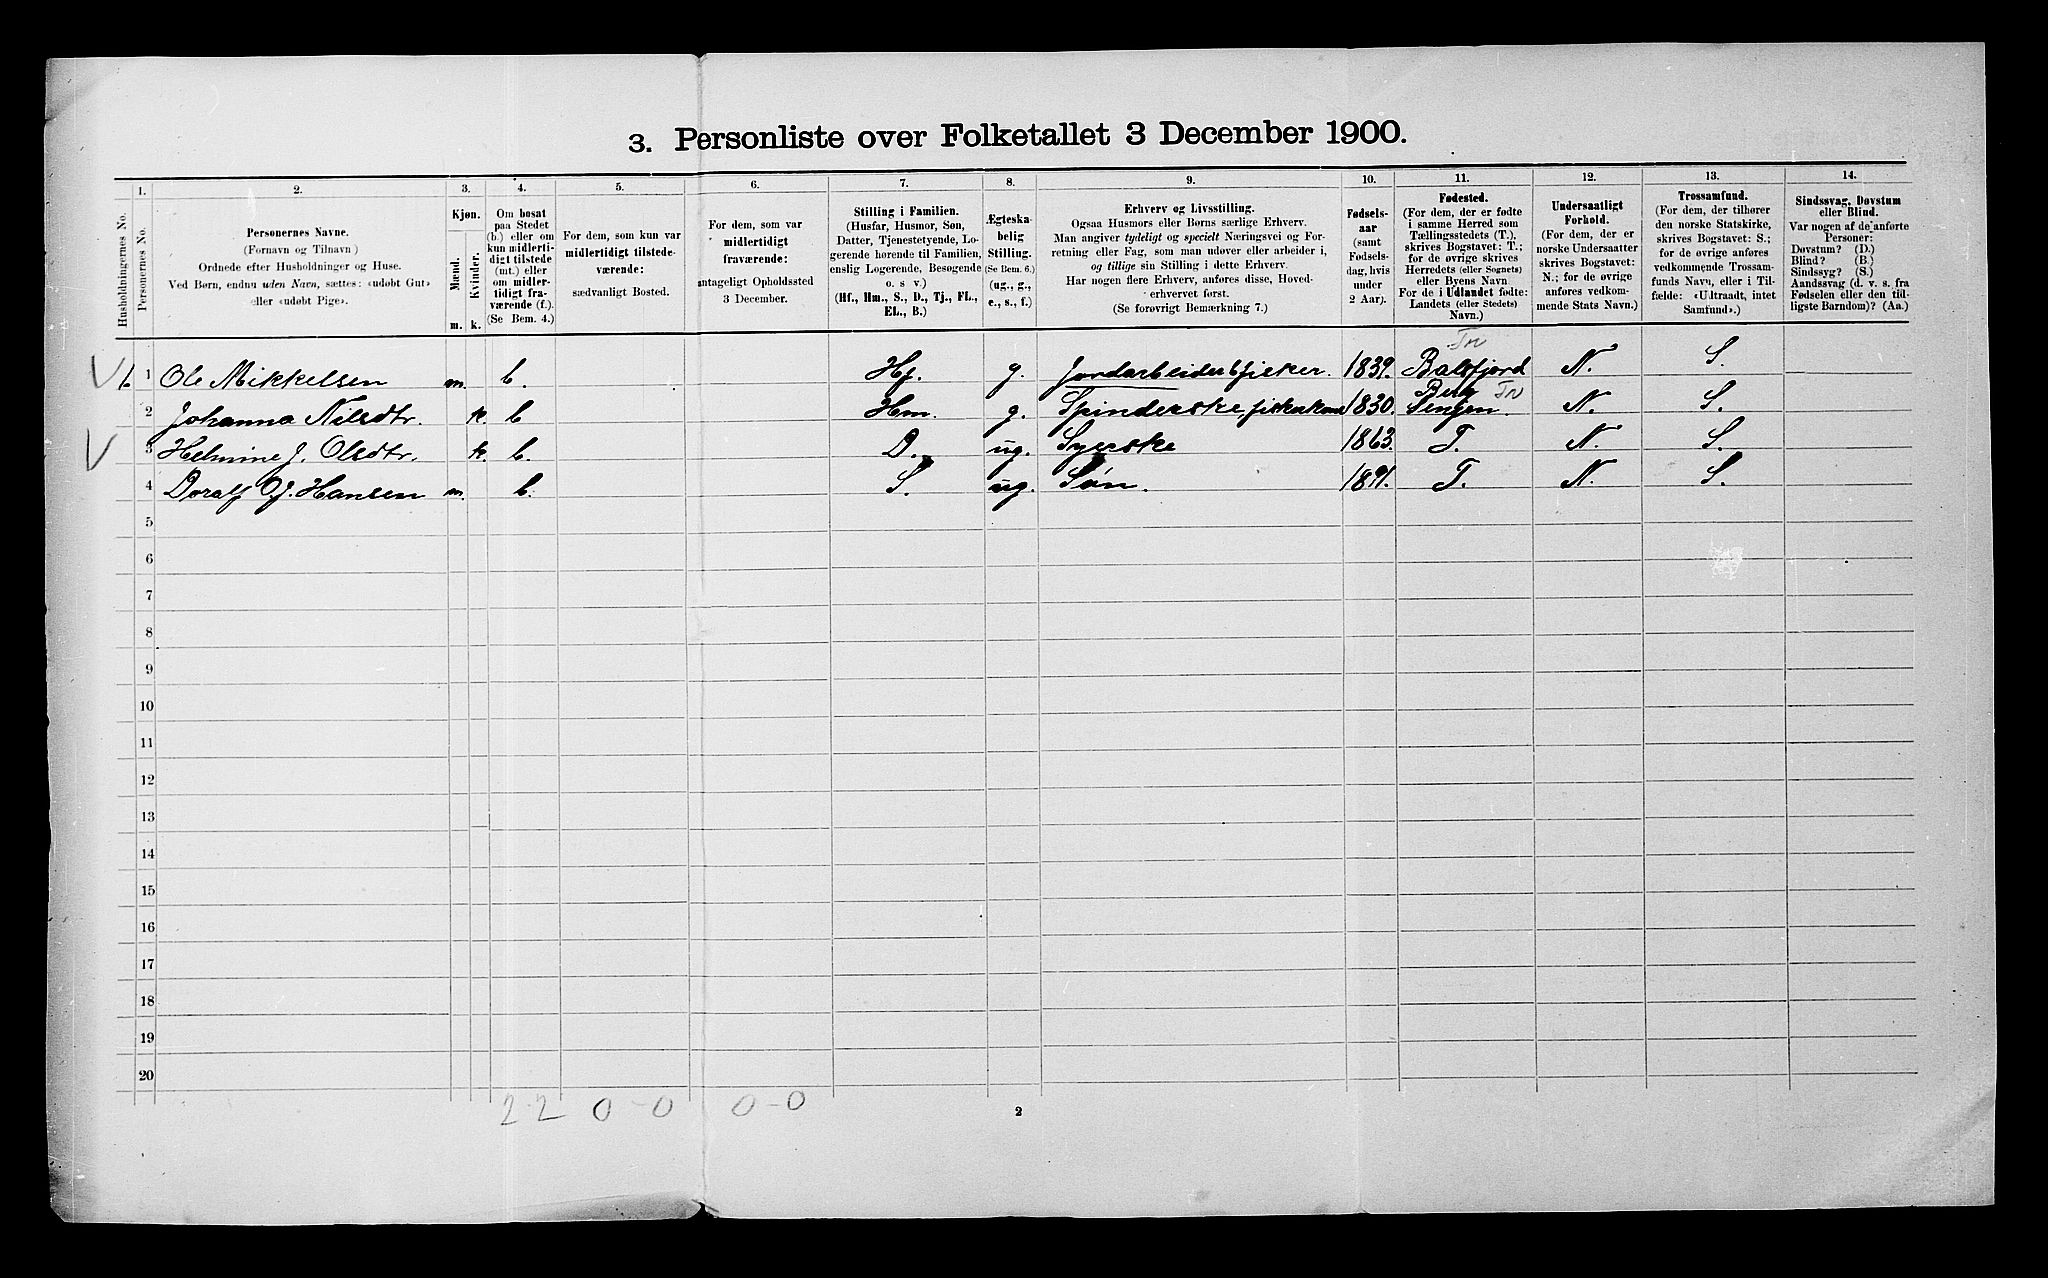 3. Personliste over Folketallet 3 December 1900.
1. 2. 3. 4. 5. 6. 7. 8. 9. 10. 11. 12. 13. 14.
Husholdningernes No.
Personernes No.
Personernes Navne.
(Fornavn og Tilnavn)
Ordnede efter Husholdninger og Huse.
Ved Børn, endnu uden Navn, sættes: «udøbt Gut»
eller «udøbt Pige».
Kjøn.
Mænd.
Kvinder.
m. k.
Om bosat
paa Stedet
(b.) eller om
kun midlerti-
digt tilstede
(mt.) eller
om midler-
tidigt fra-
værende (f.).
(Se Bem. 4.)
For dem, som kun var
midlertidigt tilstede-
værende:
sædvanligt Bosted.
For dem, som var
midlertidigt
fraværende:
antageligt Opholdssted
3 December.
Stilling i Familien.
(Husfar, Husmor, Søn,
Datter, Tjenestetyende, Lo-
gerende hørende til Familien,
enslig Logerende, Besøgende
o. s v.)
(Hf., Hm., S., D., Tj., FL.,
EL., B.)
Ægteska-
belig
Stilling.
(Se Bem. 6.)
(ug., g.,
e., s., f.)
Erhverv og Livsstilling.
Ogsaa Husmors eller Børns særlige Erhverv.
Man angiver tydeligt og specielt Næringsvei og For-
retning eller Fag, som man udøver eller arbeider i,
og tillige sin Stilling i dette Erhverv.
Har nogen flere Erhverv, anføres disse, Hoved-
erhvervet først.
(Se forøvrigt Bemærkning 7.)
Fødsels-
aar
(samt
Fødsels-
dag, hvis
under
2 Aar).
Fødested.
(For dem, der er fødte
i samme Herred som
Tællingsstedets (T.),
skrives Bogstavet: T.;
for de øvrige skrives
Herredets (eller Sognets)
eller Byens Navn
For de i Udlandet fødte:
Landets (eller Stedets)
Navn.)
Undersaatligt
Forhold.
(For dem, der er
norske Undersaatter
skrives Bogstavet:
N.; for de øvrige
anføres vedkom-
mende Stats Navn.)
Trossamfund.
(For dem, der tilhører
den norske Statskirke,
skrives Bogstavet: S.;
for de øvrige anføres
vedkommende Trossam-
funds Navn, eller i Til-
fælde: «Udtraadt, intet
Samfund».)
Sindssvag, Døvstum
eller Blind.
Var nogen af de anførte
Personer:
Døvstum? (D.)
Blind? (B.)
Sindssyg? (S.)
Aandssvag (d. v. s. fra
Fødselen eller den tid-
ligste Barndom)? (Aa.)
Tr
1 Ole Mikkelsen m. b. Hf. g. Jordarbeider & fisker. 1839. Balsfjord N. S.
Berg Tr
2 Johanna Nilsdtr. k. b Hm. g. Spinderske, fiskerkone 1830. Senjen. N. S.
3 Helmine J. Olsdtr. k. b. D. ug. Syerske 1863. T. N. S.
4 Doralf O. J. Hansen m. b. S. ug. Søn. 1891. T. N. S.
5
6
7
8
9
10
11
12
13
14
15
16
17
18
19
20
2 2 0-0 0-0
2